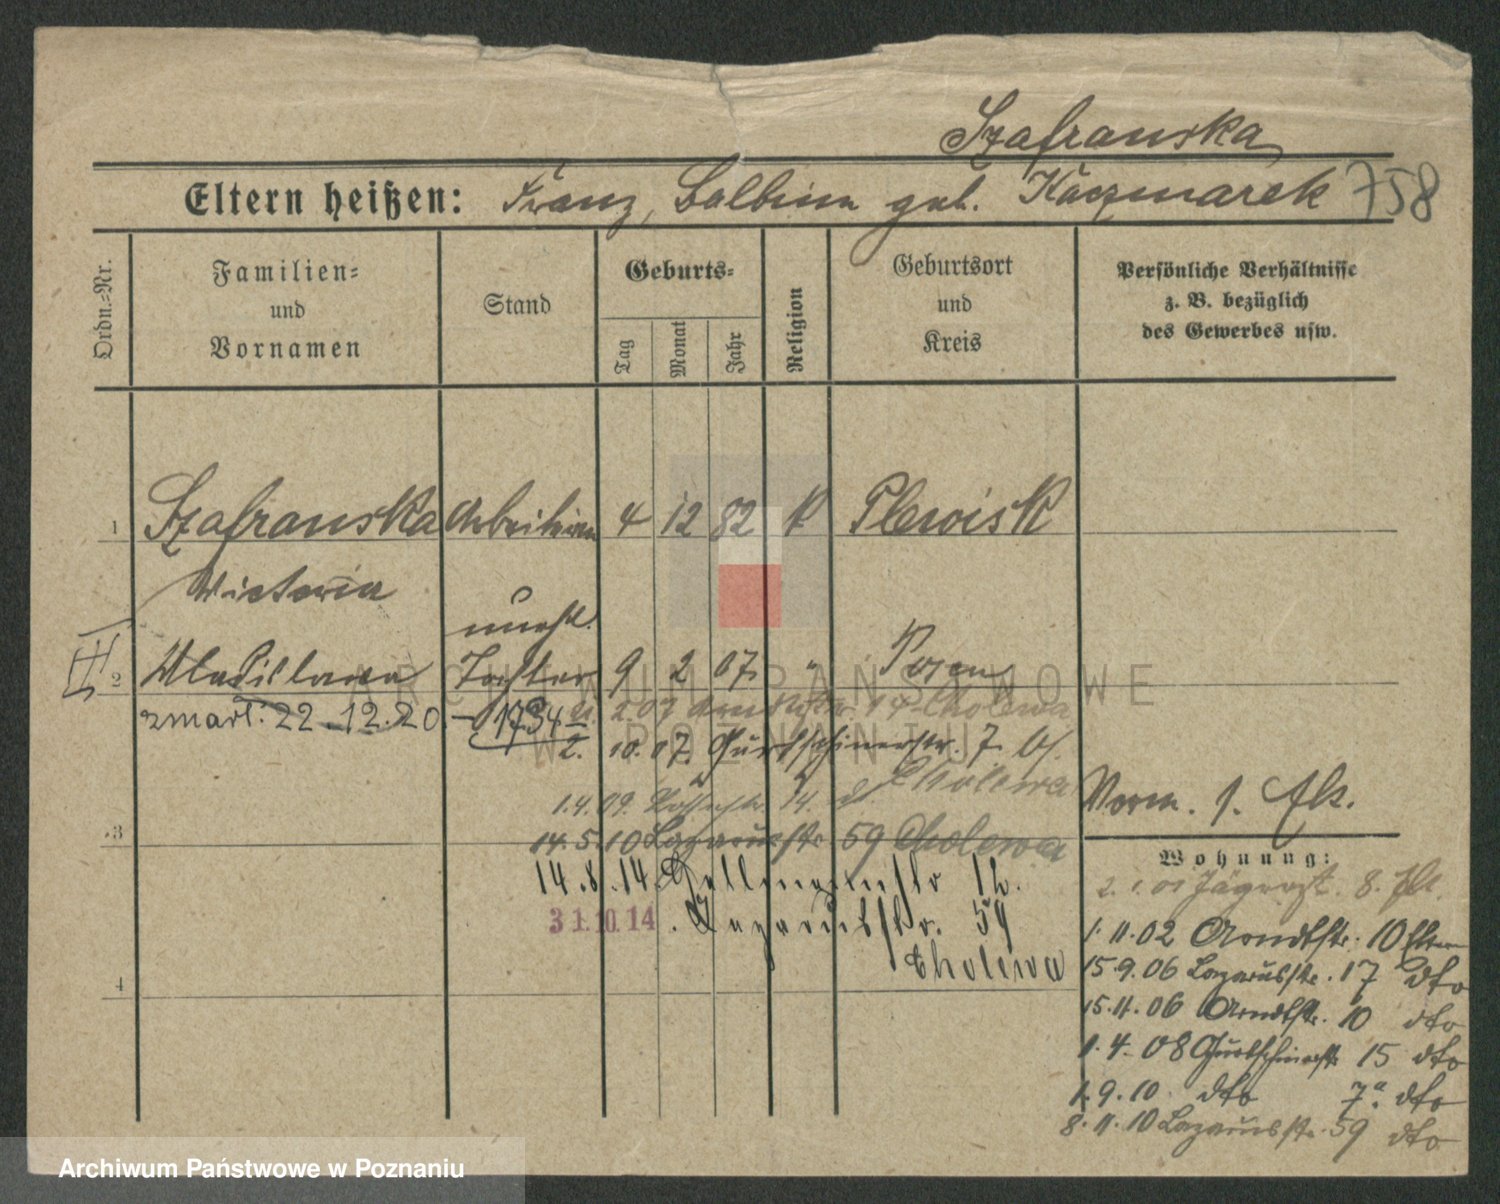 Szafranska
Eltern heißen: Franz, Balbina geb. Kaczmarek 758
Ordn.=Nr.
Familien=
und
Vornamen
Stand
Geburts=
Tag
Monat
Jahr
Religion
Geburtsort
und
Kreis
Persönliche Verhältnisse
z. B. bezüglich
des Gewerbes usw.
1 Szafranska Arbeiterin 4 12 82 K Plewisk
Victoria
unehl.
III
2 Wladislawa Tochter 9 2 07 " Posen
zmarł: 22.12.20. – 1734
2.07 14 Cholewa
2. 10. 07. Gurtschinerstr. 7.
Cholewa
1.4.09. 14.
3
14.5.10 Lazarusstr 59 Cholewa
14.8.14. 12.
31.10.14. Lazarusstr. 59
Cholewa
4
Vorm. 1.
Wohnung:
2.1.01 Jägerst. 8.
1.11.02 Arndtstr. 10 Eltern
15.9.06 Lazarusstr. 17 dto
15.11.06 Arndtstr. 10 dto
1.4.08 Gurtschinerstr 15 dto
1.9.10 dto 7a. dto
8.11.10 Lazarusstr. 59 dto
ARCHIWUM PAŃSTWOWE
W POZNANIU
Archiwum Państwowe w Poznaniu